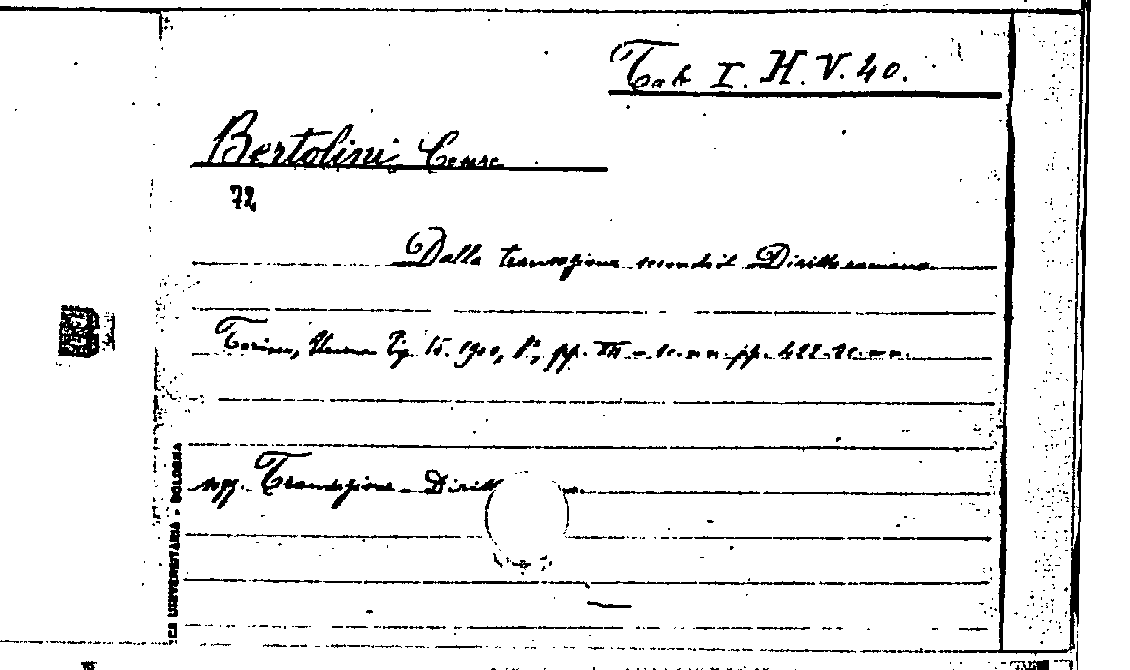 Tab I. H. V. 40.
Bertolini, Cesare
72
Dalla transazione secondo il Diritto romano
Torino, Unione Tip. Ed. 1900, 8°, pp. VII - 1 c. n n pp. 422. 2 c. n n.
sogg. Transazione - Diritt
UNIVERSITARIA - BOLOGNA